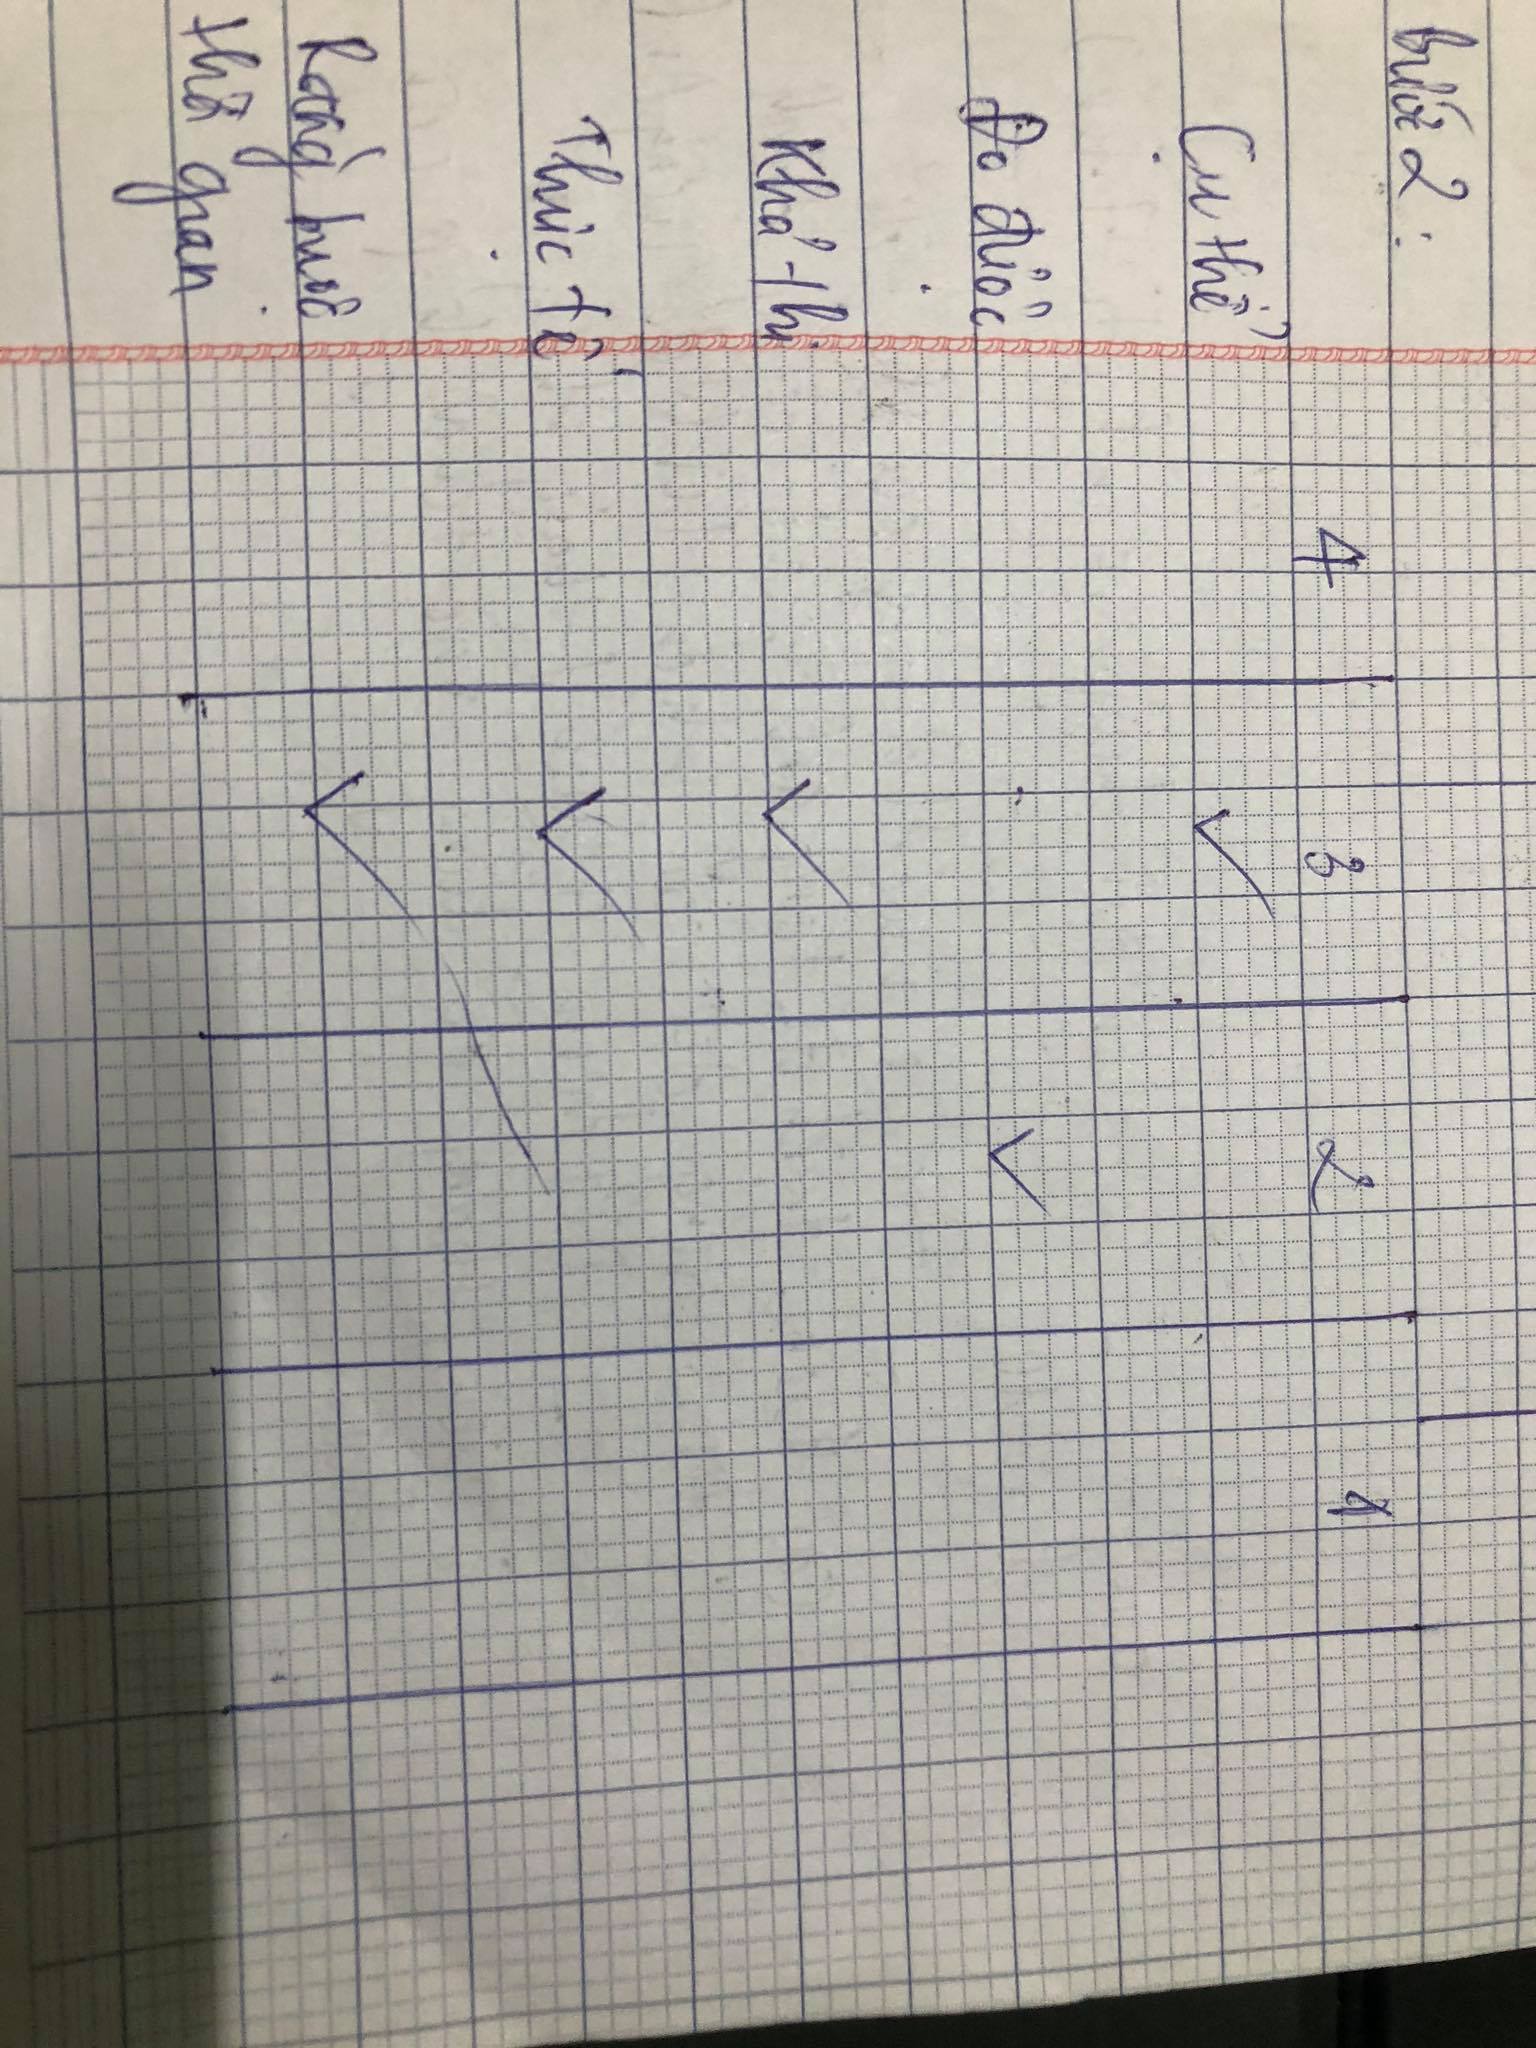 bước 2 :
4 3 2 1
Cụ thể ✓
Đo được ✓
Khả thi ✓
Thực tế ✓
Ràng buộc ✓
thời gian